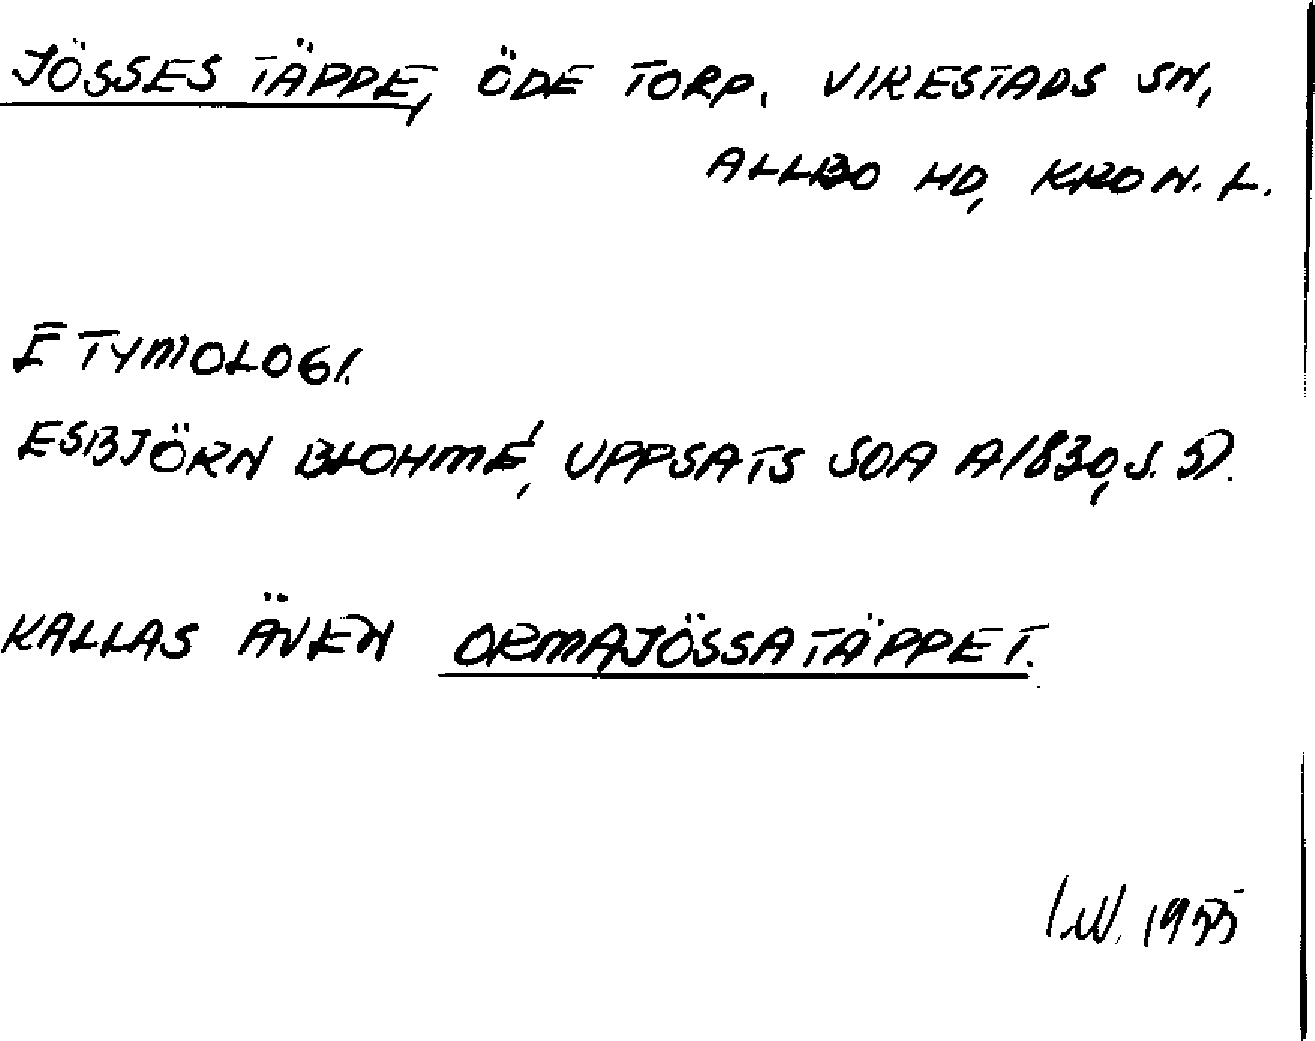 JÖSSES TÄPPE, ÖDE TORP. VIRESTADS SN,
ALLBO HD, KRON. L.
ETYMOLOGI.
ESBJÖRN BLOHMÉ, UPPSATS SOA A1830, S. 5).
KALLAS ÄVEN ORMAJÖSSATÄPPET.
1955